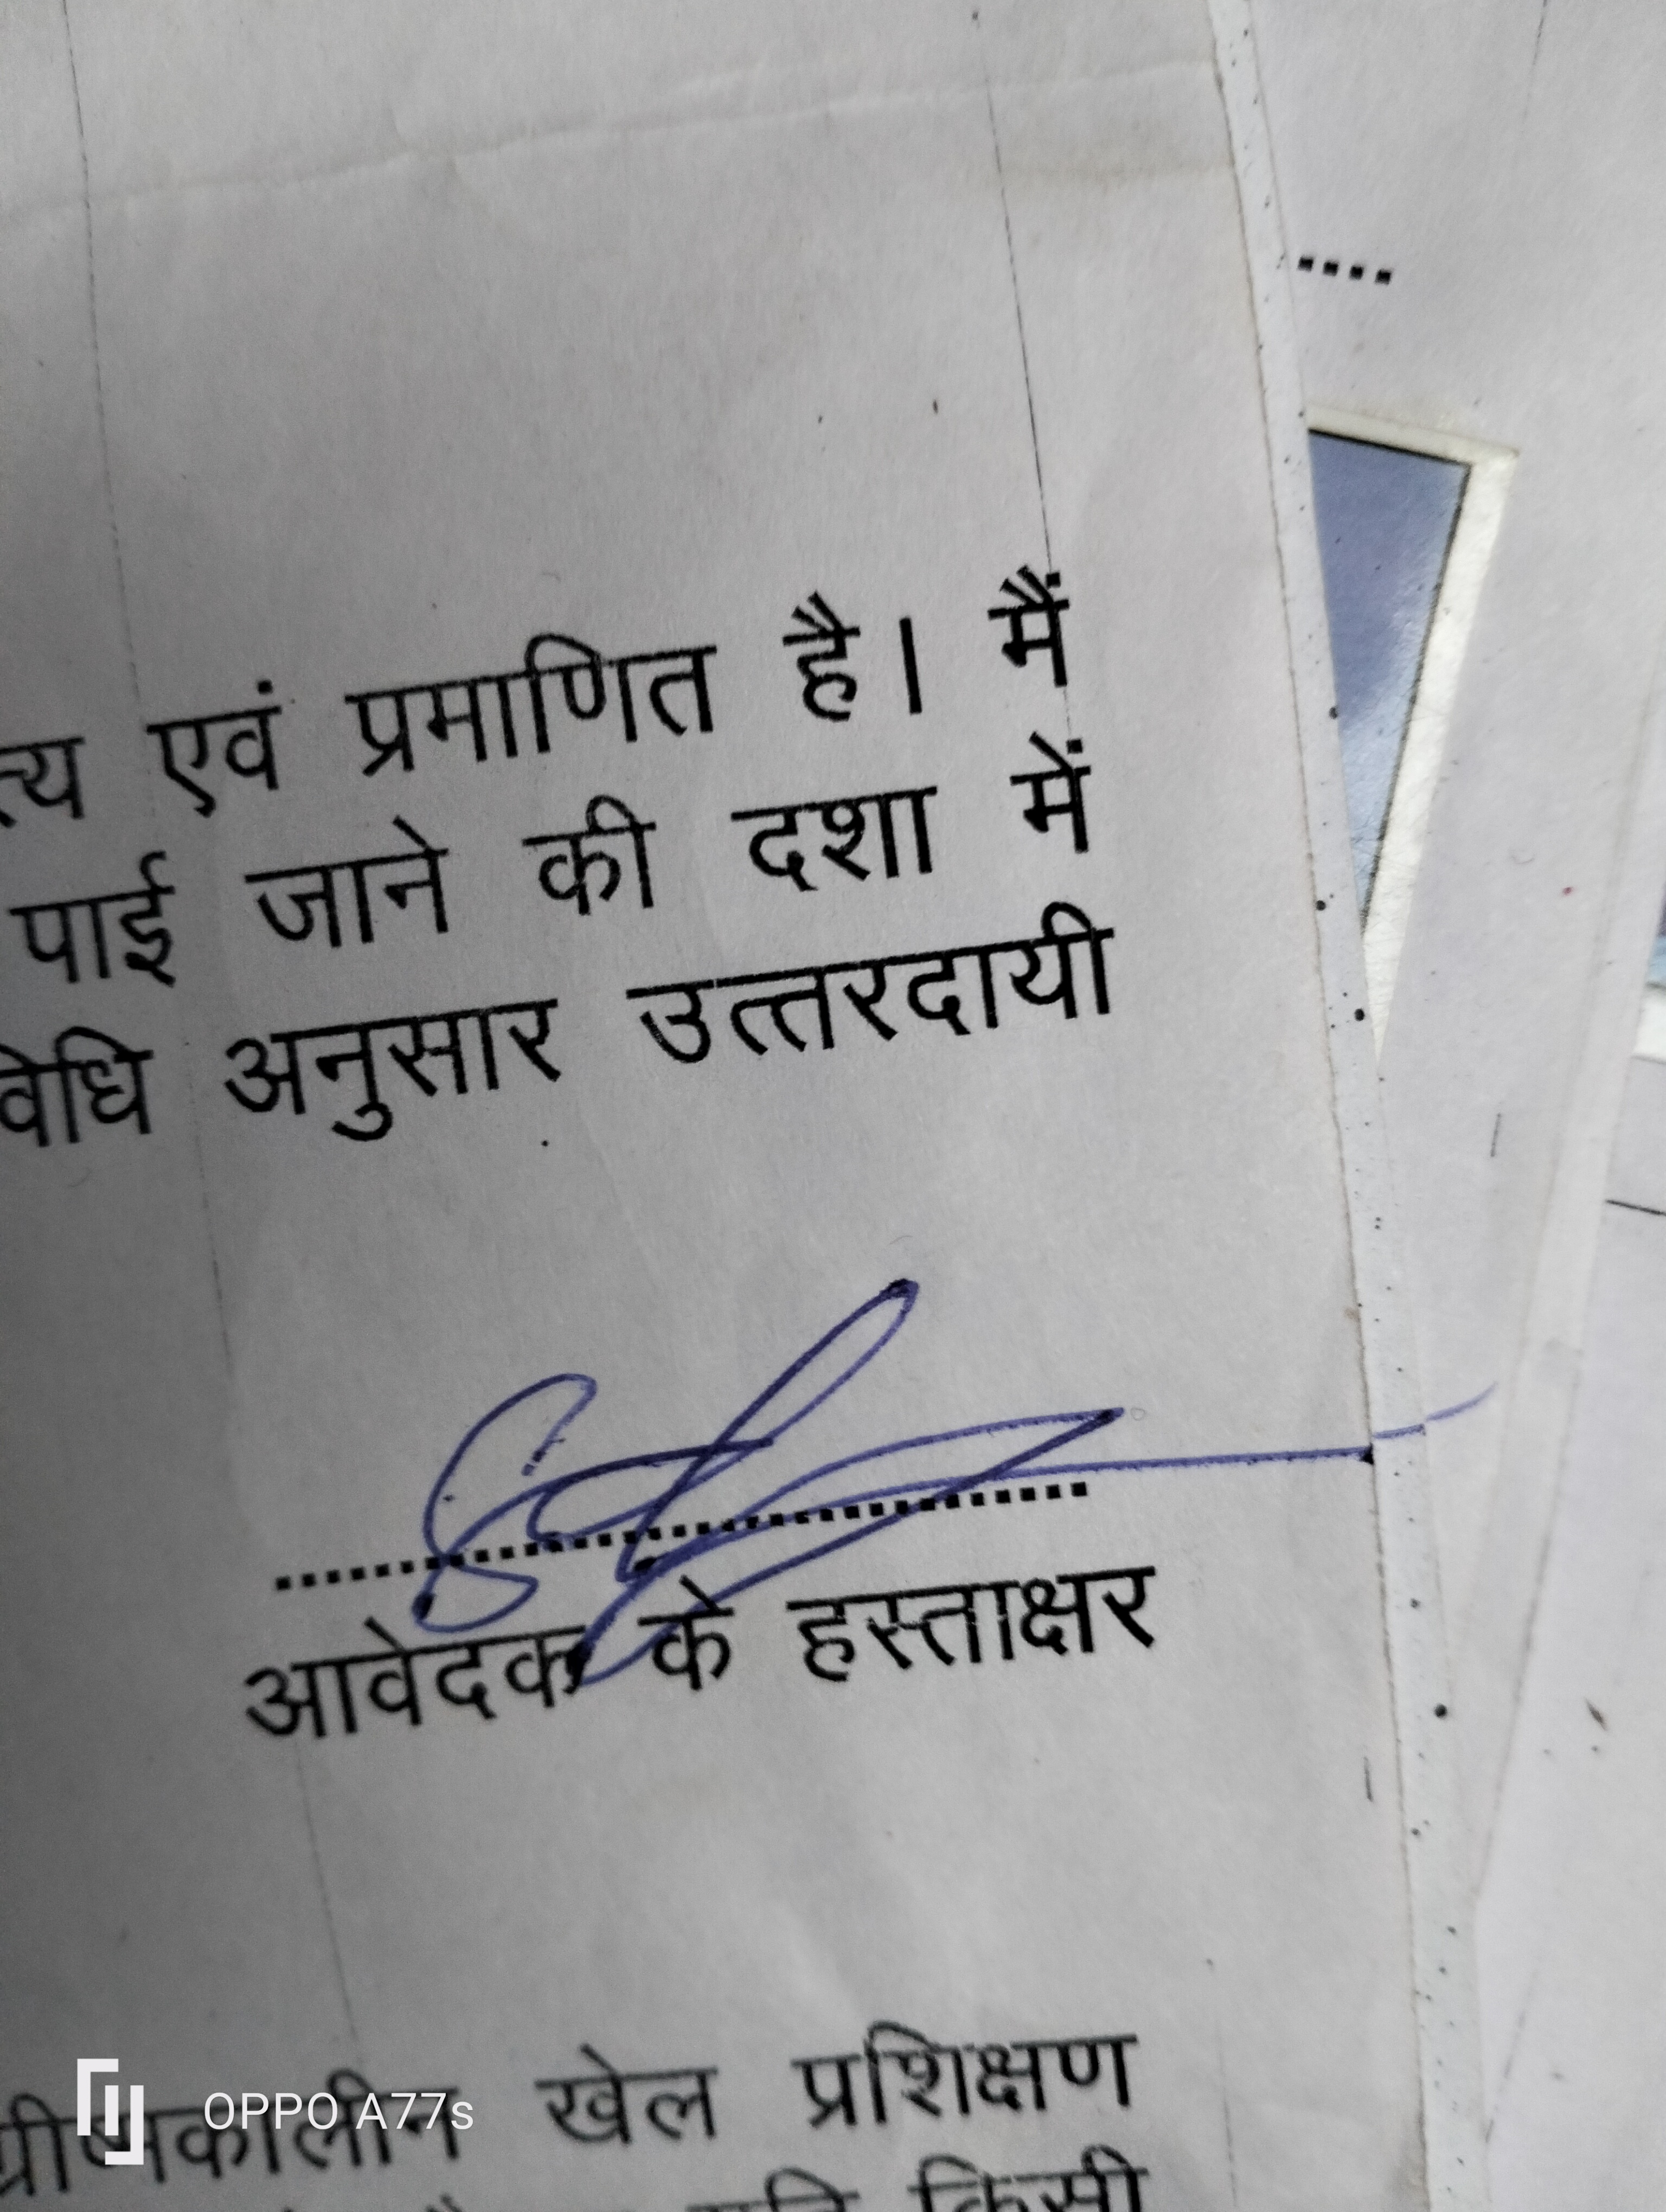 एवं प्रमाणित है। मैं
पाई जाने की दशा में
अनुसार उत्तरदायी
आवेदक के हस्ताक्षर
ग्रीष्मकालीन खेल प्रशिक्षण
किसी
OPPO A77s